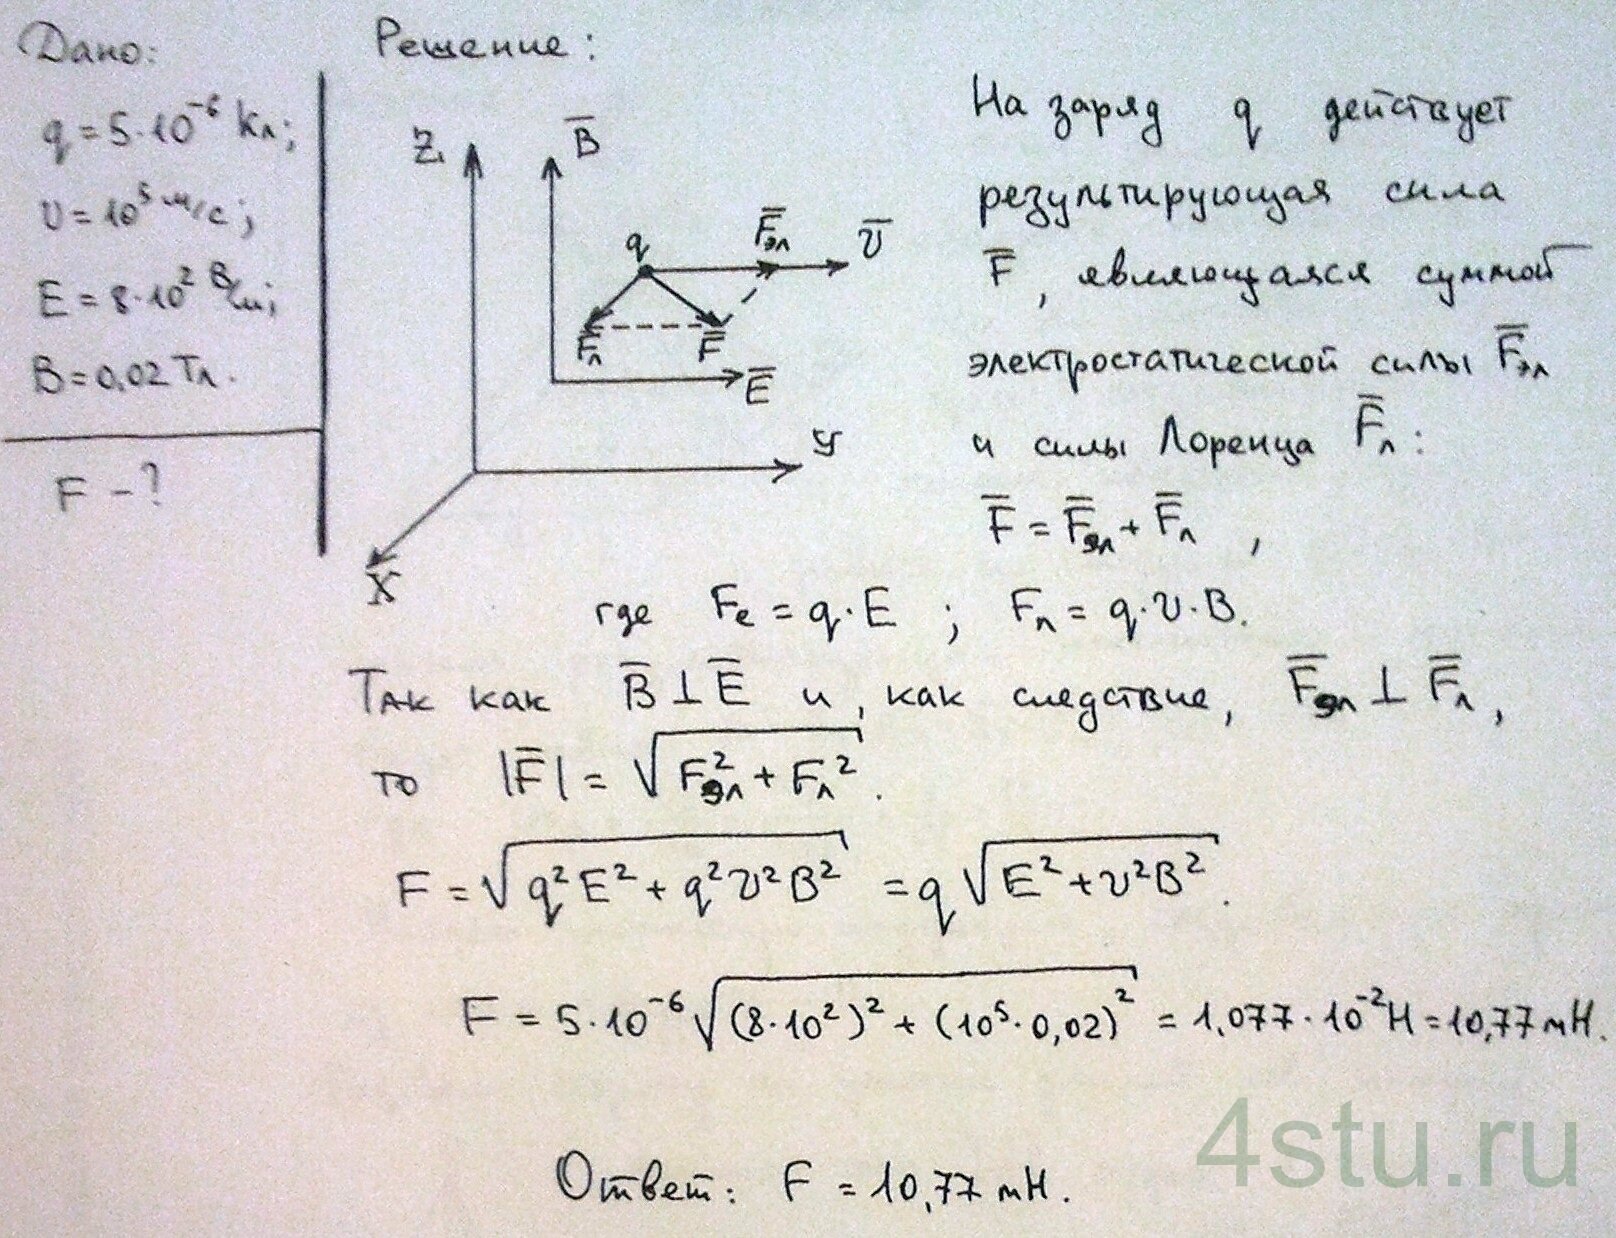 Дано:
q = 5·10⁻⁶ Кл;
υ = 10⁵ м/с;
E = 8·10² В/м;
B = 0,02 Тл.
F - ?
Решение:
Z
B̅
q
F̅эл
υ̅
F̅л
F̅
E̅
y
X
На заряд q действует
результирующая сила
F̅, являющаяся суммой
электростатической силы F̅эл
и силы Лоренца F̅л:
F̅ = F̅эл + F̅л ,
где Fе = q·E ; Fл = q·υ·B.
Так как B̅ ⊥ E̅ и, как следствие, F̅эл ⊥ F̅л,
то |F̅| = √(Fэл² + Fл²).
F = √(q²E² + q²υ²B²) = q√(E² + υ²B²).
F = 5·10⁻⁶√((8·10²)² + (10⁵·0,02)²) = 1,077·10⁻²Н = 10,77 мН.
Ответ: F = 10,77 мН.
4stu.ru